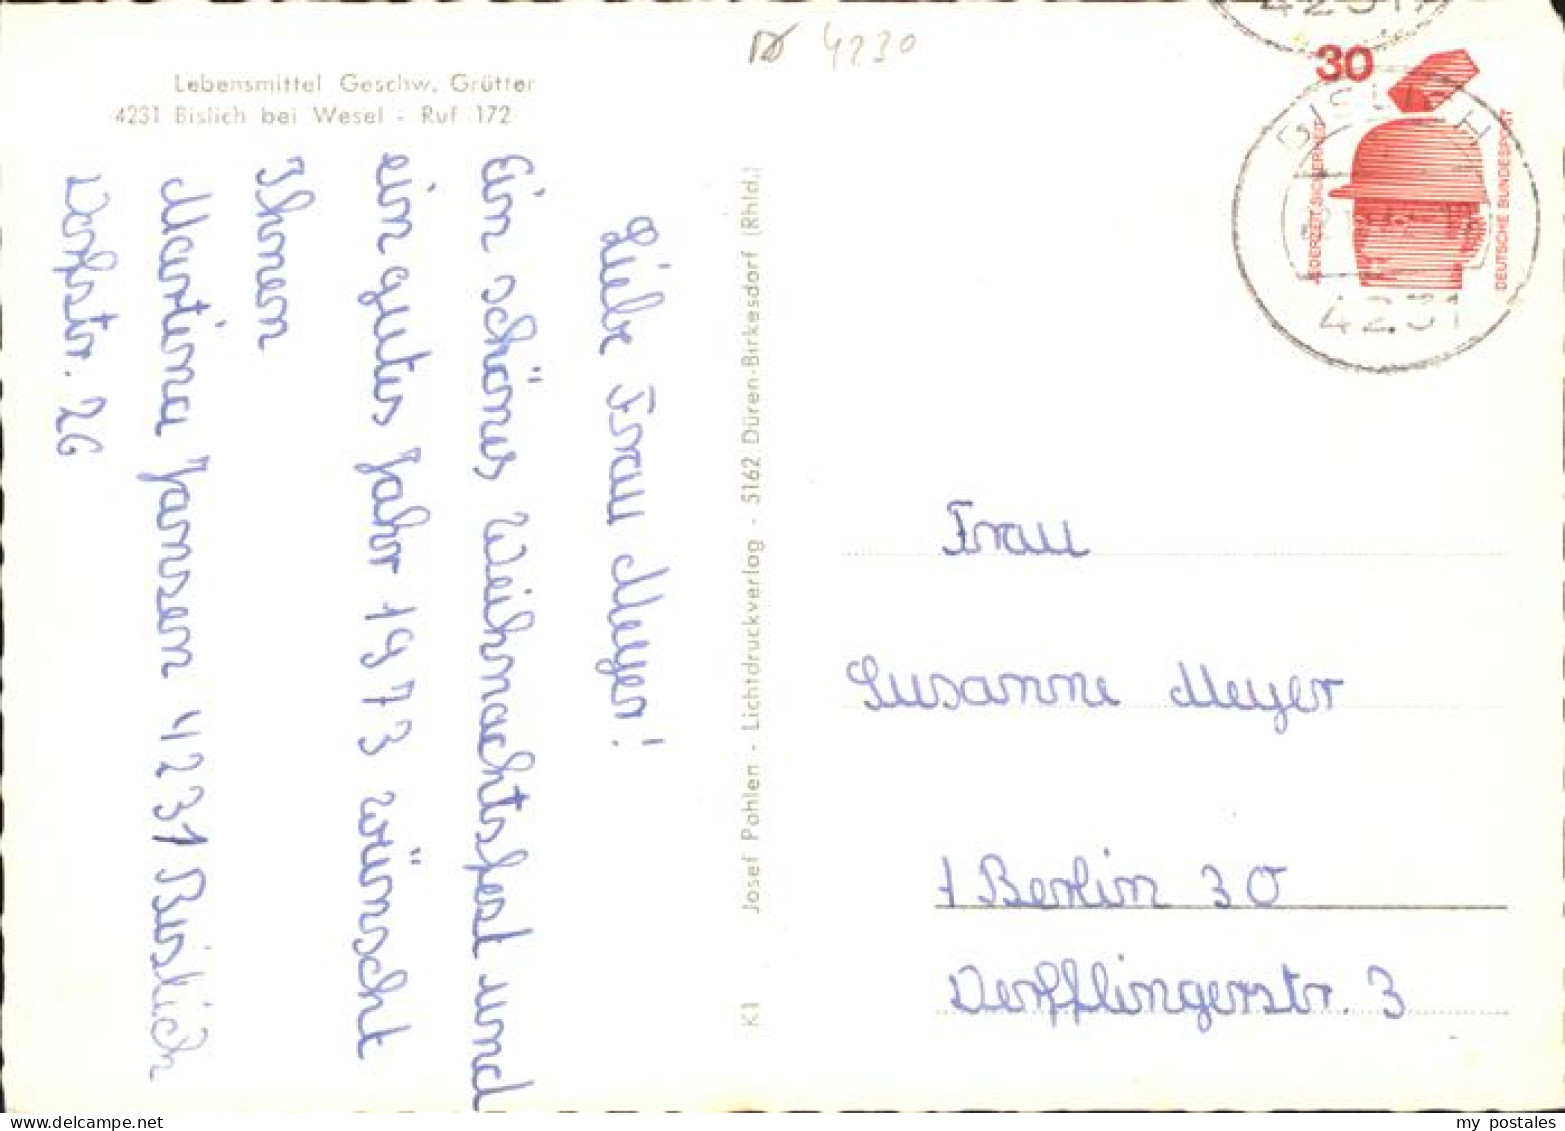 Lebensmittel Geschw. Grütter
4231 Bislich bei Wesel - Ruf 172
4230
Liebe Frau Meyer!
Ein schönes Weihnachtsfest und
ein gutes Jahr 1973 wünscht
Ihnen
Martina Jansen 4231 Bislich
Dorfstr. 26
Josef Pahlen - Lichtdruckverlag - 5162 Düren-Birkesdorf (Rhld.)
K 1
4231
30
JEDERZEIT SICHERHEIT
DEUTSCHE BUNDESPOST
BISLICH
4231
Frau
Susanne Meyer
1 Berlin 30
Derfflingerstr. 3
my postales